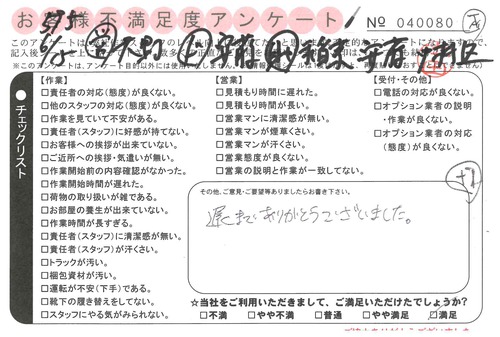 お客様不満足度アンケート
No 040080
チェックリスト
【作業】
□責任者の対応(態度)が良くない。
□他のスタッフの対応(態度)が良くない。
□作業を見ていて不安がある。
□責任者(スタッフ)に好感が持てない。
□お客様への挨拶が出来ていない。
□ご近所への挨拶・気遣いが無い。
□作業開始前の内容確認がなかった。
□作業開始時間が遅れた。
□荷物の取り扱いが雑である。
□お部屋の養生が出来ていない。
□作業時間が長すぎる。
□責任者(スタッフ)に清潔感が無い。
□責任者(スタッフ)が汗くさい。
□トラックが汚い。
□梱包資材が汚い。
□運転が不安(下手)である。
□靴下の履き替えをしてない。
□スタッフにやる気がみられない。
【営業】
□見積もり時間に遅れた。
□見積もり時間が長い。
□営業マンに清潔感が無い。
□営業マンが煙草くさい。
□営業マンが汗くさい。
□営業態度が良くない。
□営業の説明と作業が一致してない。
【受付・その他】
□電話の対応が良くない。
□オプション業者の説明
・作業が良くない。
□オプション業者の対応
(態度)が良くない。
その他、ご意見・ご要望等ありましたらお書き下さい。
遅くまでありがとうございました。
☆当社をご利用いただきまして、ご満足いただけたでしょうか?
□不満 □やや不満 □普通 □やや満足 ☑満足